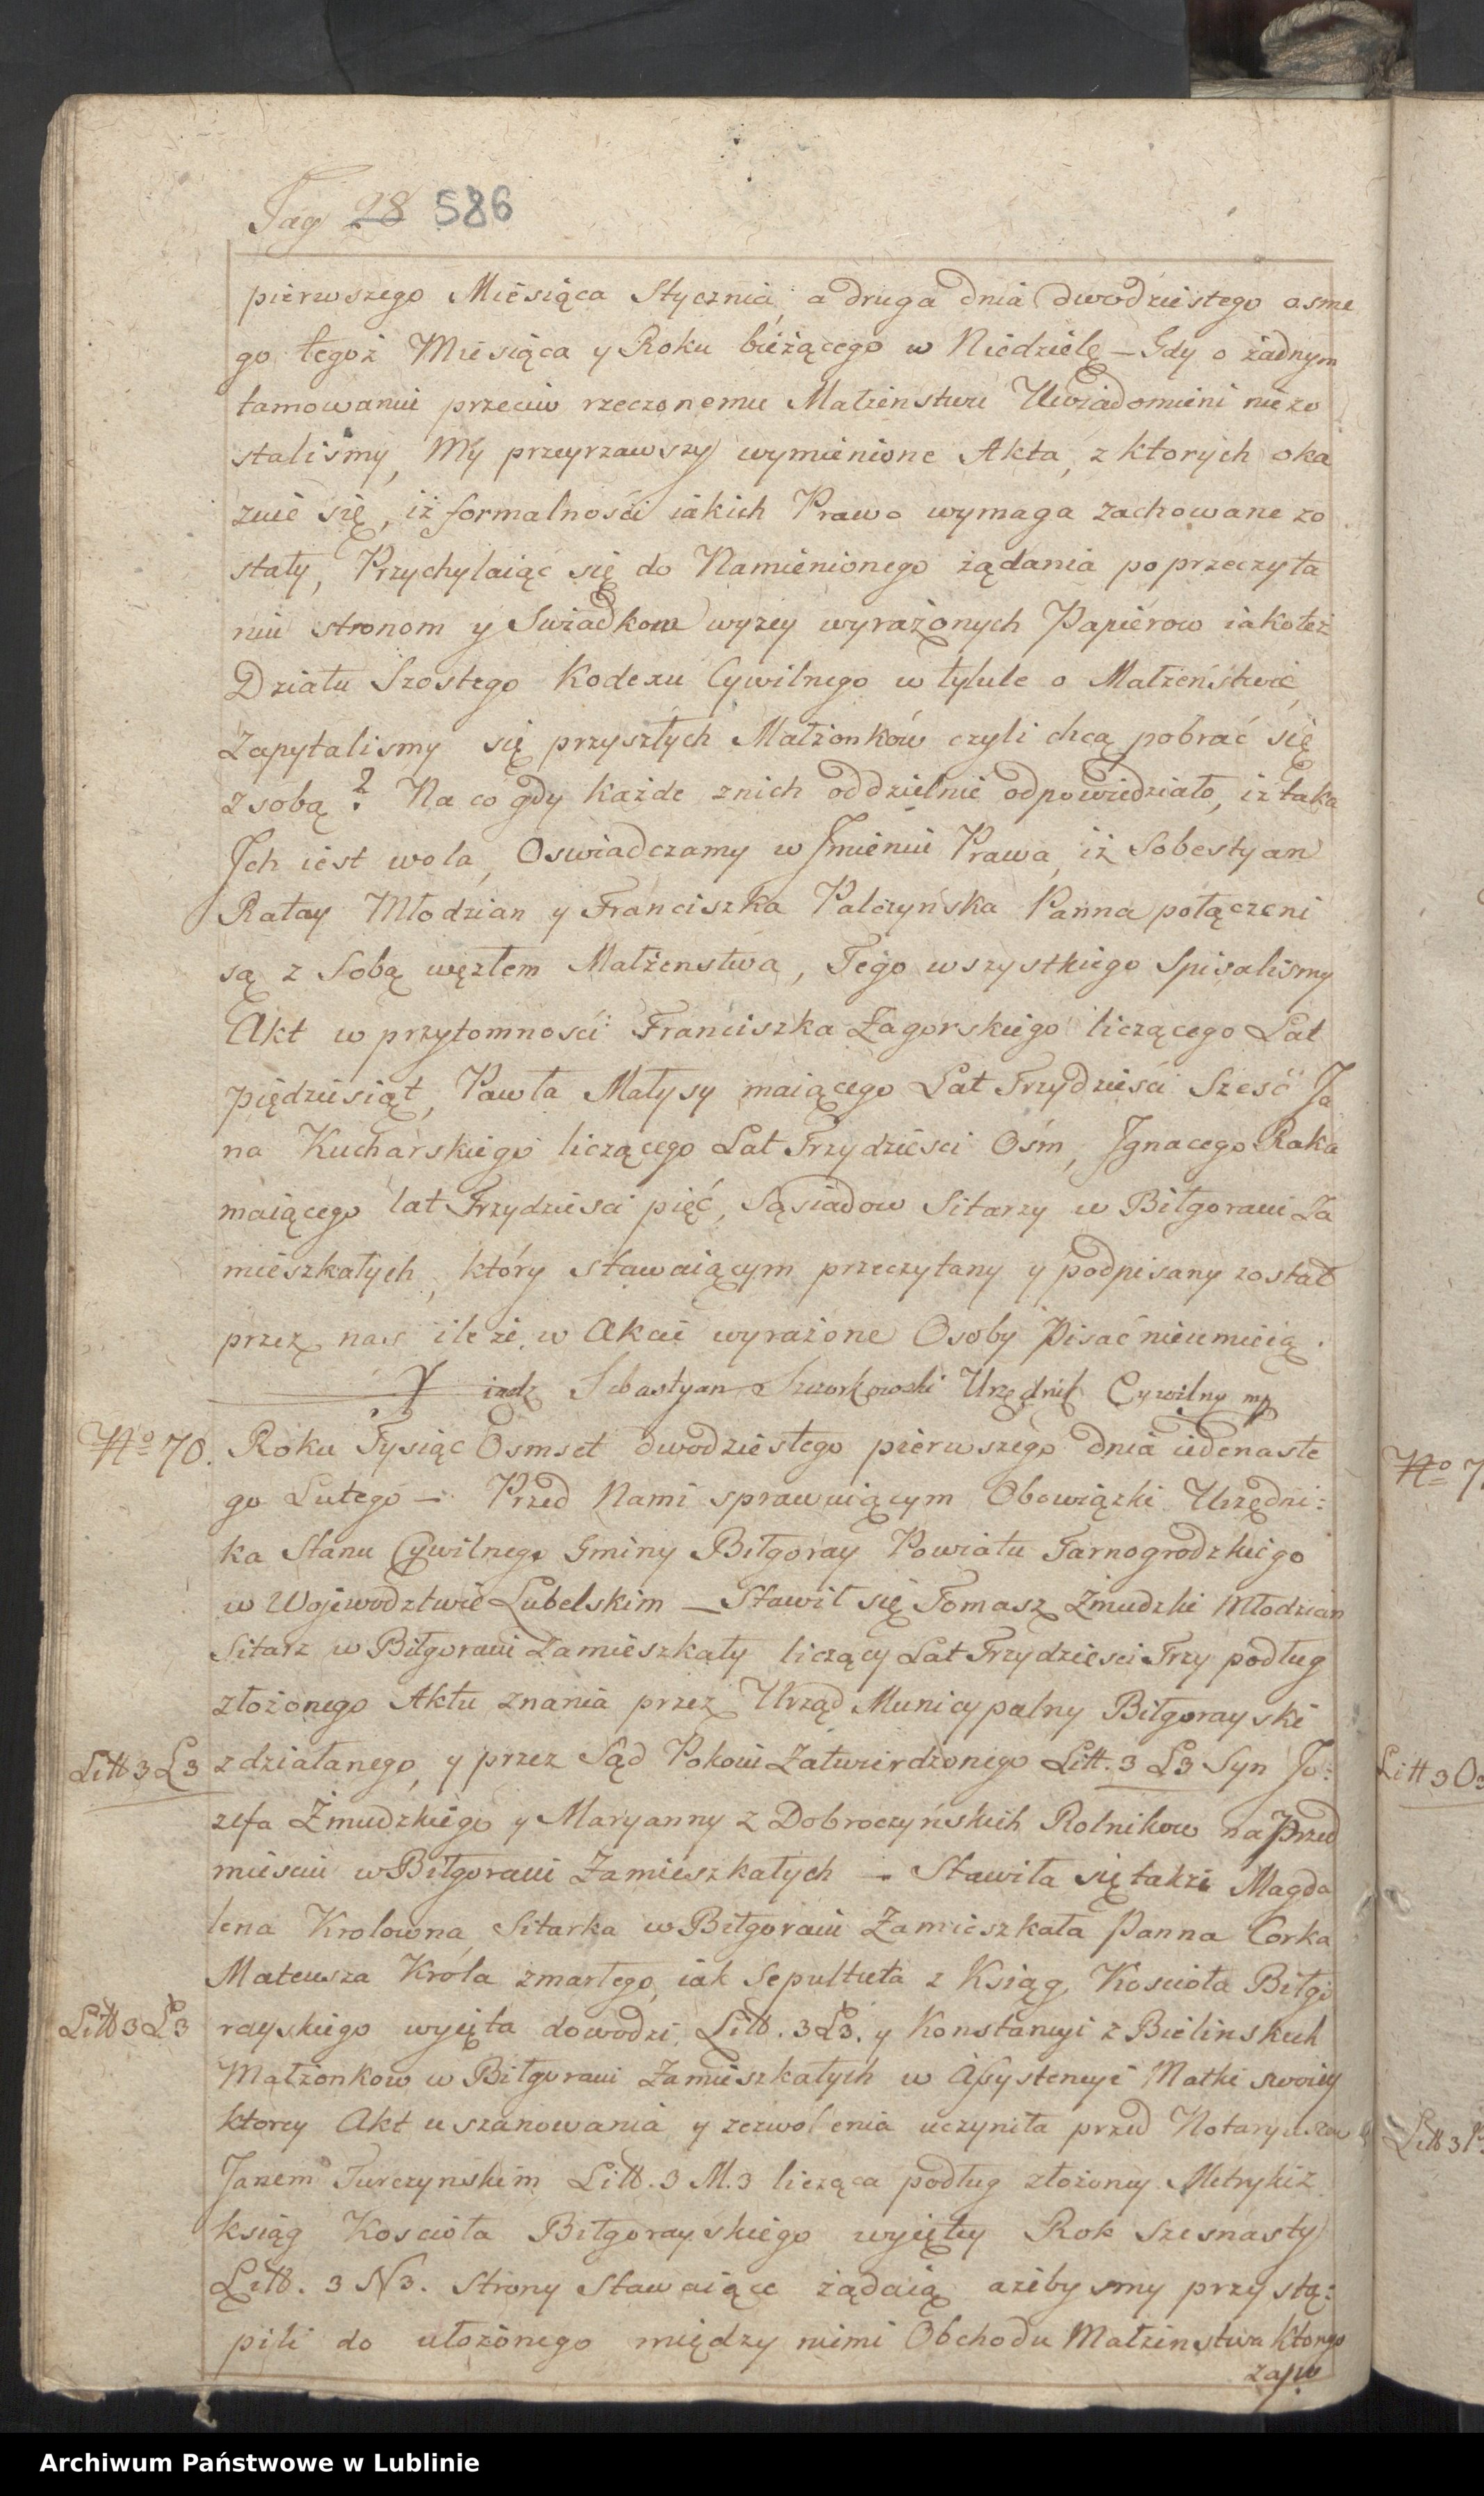 Pag 28 586
pierwszego Miesiąca Stycznia, a druga dnia dwodziestego osme
go tegoż Miesiąca y Roku bieżącego w Niedzielę – Gdy o żadnym
tamowaniu przeciw rzeczonemu Małżenstwu Uwiadomieni niezo
stalismy, My przeyrzawszy wymienione Akta, z ktorych oka
zuie się, iż formalnośći iakich Prawo wymaga zachowane zo
stały, Przychylaiąc się do Namienionego żądania po przeczyta
niu stronom y Swiadkom wyzey wyrażonych Papierow iakoteż
Działu Szostego Kodexu Cywilnego w tytule o Małżeństwie
Zapytalismy się przyszłych Małżonków czyli chcą pobrać się
z sobą? Na co gdy każde znich oddzielnie odpowiedziało, iż taka
Jch iest wola, Oswiadczamy w Jmieniu Prawa, iż Sobestyan
Rataу Młodzian y Franciszka Palczyńska Panna połączeni
są z Sobą węzłem Małżenstwa, Tego wszystkiego Spisaliśmy
Akt w przytomnośći Franciszka Zagorskiego liczącego Lat
piędziesiąt, Pawła Małysy maiącego Lat Trzydzieśći Sześć Ja
na Kucharskiego liczącego Lat Trzydziesci Ośm, Jgnacego Raka
maiącego lat Trzydziesci pięć, Sąsiadow Sitarzy w Biłgoraiu Za
mieszkałych, który stawaiącym przeczytany y podpisany został
przez nas ile że w Akcie wyrażone Osoby Pisać nieumieią.
X iądz Sebastyan Szworkowski Urzędnik Cywilny mp
No 70. Roku Tysiąc Osmset dwodziestego pierwszego dnia iedenaste
go Lutego – Przed Nami sprawuiącym Obowiązki Urzędni:
ka Stanu Cywilnego Gminy Biłgoray Powiatu Tarnogrodzkiego
w Wojewodztwie Lubelskim – Stawił się Tomasz Żmudzki Młodzian
Sitarz w Biłgoraiu Zamieszkały liczący Lat Trzydziesci Trzy podług
złożonego Aktu znania przez Urząd Municypalny Biłgorayski
Litt 3 L3 zdziałanego, y przez Sąd Pokoiu Zatwierdzonego Litt. 3 L3 Syn Jo:
zefa Żmudzkiego y Maryanny z Dobroczyńskich Rolnikow na Przed
miesciu w Biłgoraiu Zamieszkałych – Stawiła się także Magda
lena Krolowna Sitarka w Biłgoraiu Zamieszkała Panna Corka
Mateusza Króla zmarłego, iak Sepultuta z Ksiąg Kościoła Biłgo
Litt 3 L3 rayskiego wyięta dowodzi Litt. 3 L3. y Konstancyi z Bielinskich
Małżonkow w Biłgoraiu Zamieszkałych w Assystencyi Matki swoiey
ktorey Akt uszanowania y zezwolenia uczyniła przed Notaryuszem
Janem Turczynskim Litt. 3 M. 3 licząca podług złożoney Metryki z
ksiąg Kosciola Biłgorayskiego wyiętey Rok Szesnasty
Litt. 3 N3. Strony Stawaiące żądaią ażebysmy przystą:
pili do ułożonego między nimi Obchodu Małżenstwa ktorego
zapw
No 7
Litt 3 O3
Litt 3 P